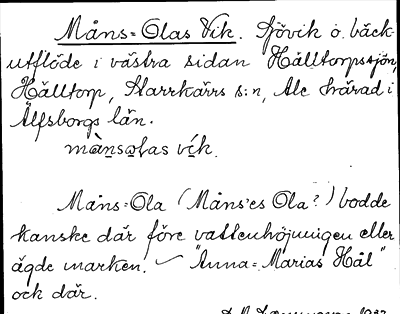 Måns=Olas Vik. Sjövik o. bäck-
utflöde i västra sidan Hålltorpssjön,
Hålltorp, Starrkärrs s:n, Ale härad i
Älfsborgs län.
månsolas vík.
Måns=Ola (Måns'es Ola?) bodde
kanske där före vattenhöjningen eller
ägde marken. "Anna=Marias Hål"
och där.